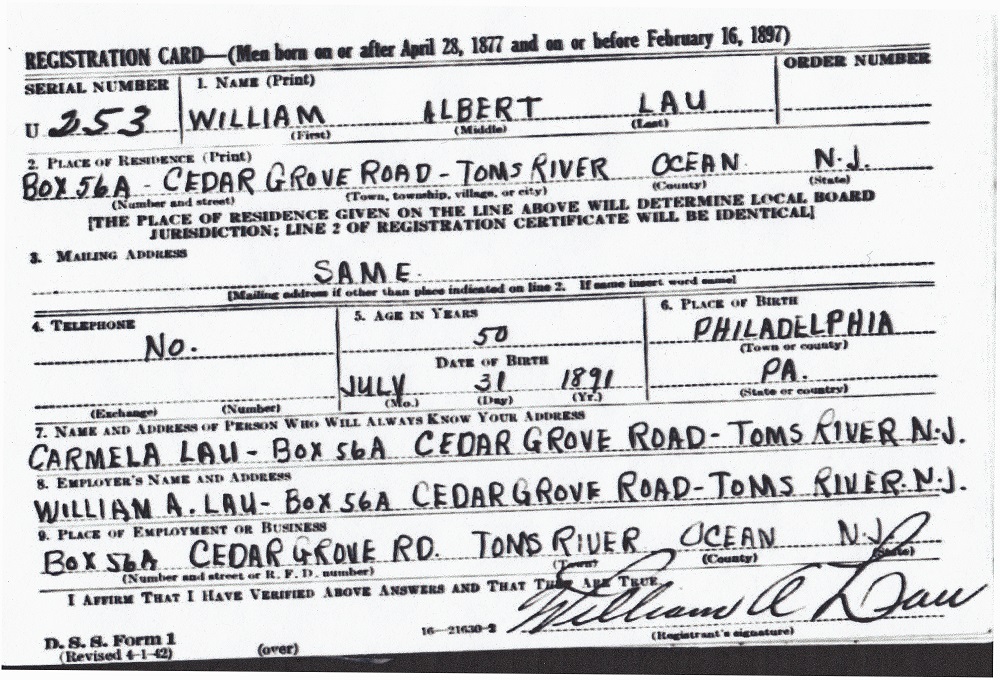 REGISTRATION CARD—(Men born on or after April 28, 1877 and on or before February 16, 1897)
SERIAL NUMBER 1. NAME (Print) ORDER NUMBER
U 253 WILLIAM ALBERT LAU
(First) (Middle) (Last)
2. PLACE OF RESIDENCE (Print)
BOX 56A - CEDAR GROVE ROAD - TOMS RIVER OCEAN N.J.
(Number and street) (Town, township, village, or city) (County) (State)
[THE PLACE OF RESIDENCE GIVEN ON THE LINE ABOVE WILL DETERMINE LOCAL BOARD
JURISDICTION; LINE 2 OF REGISTRATION CERTIFICATE WILL BE IDENTICAL]
3. MAILING ADDRESS
SAME.
[Mailing address if other than place indicated on line 2. If same insert word same]
4. TELEPHONE 5. AGE IN YEARS 6. PLACE OF BIRTH
No. 50 PHILADELPHIA
(Town or county)
DATE OF BIRTH
JULY 31 1891 PA.
(Exchange) (Number) (Mo.) (Day) (Yr.) (State or country)
7. NAME AND ADDRESS OF PERSON WHO WILL ALWAYS KNOW YOUR ADDRESS
CARMELA LAU - BOX 56A CEDAR GROVE ROAD - TOMS RIVER N.J.
8. EMPLOYER'S NAME AND ADDRESS
WILLIAM A. LAU - BOX 56A CEDAR GROVE ROAD - TOMS RIVER. N.J.
9. PLACE OF EMPLOYMENT OR BUSINESS
BOX 56A CEDAR GROVE RD. TOMS RIVER OCEAN N.J.
(Number and street or R. F. D. number) (Town) (County) (State)
I AFFIRM THAT I HAVE VERIFIED ABOVE ANSWERS AND THAT THEY ARE TRUE.
William A Lau
D. S. S. Form 1 16—21630-2 (Registrant's signature)
(Revised 4-1-42) (over)